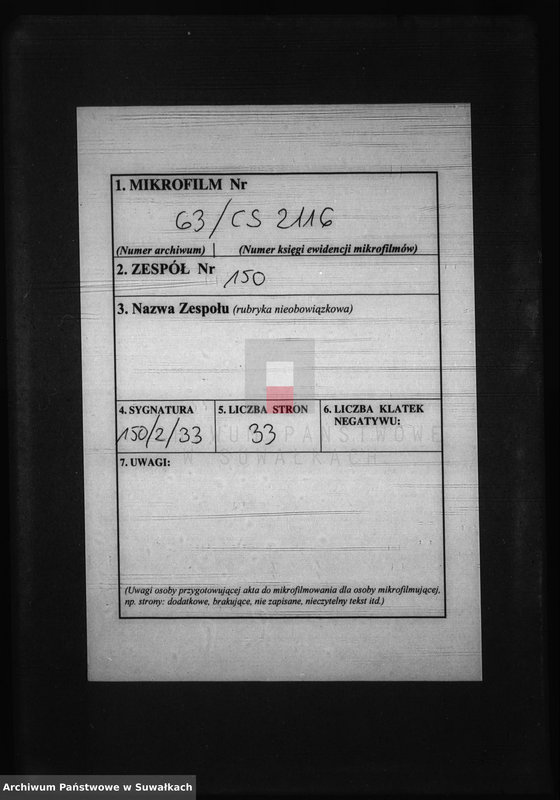 1. MIKROFILM Nr
63/CS 2116
(Numer archiwum) (Numer księgi ewidencji mikrofilmów)
2. ZESPÓŁ Nr 150
3. Nazwa Zespołu (rubryka nieobowiązkowa)
4. SYGNATURA 5. LICZBA STRON 6. LICZBA KLATEK
NEGATYWU:
150/2/33 33
ARCHIWUM PAŃSTWOWE
W SUWAŁKACH
7. UWAGI:
(Uwagi osoby przygotowującej akta do mikrofilmowania dla osoby mikrofilmującej,
np. strony: dodatkowe, brakujące, nie zapisane, nieczytelny tekst itd.)
Archiwum Państwowe w Suwałkach